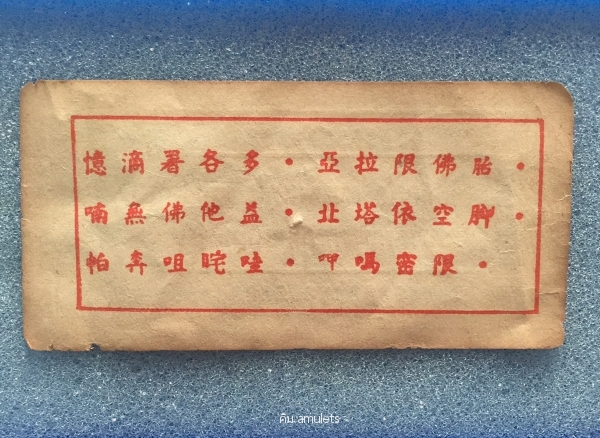 憶滴署各多•亞拉限佛胎•
喃無佛他益•北塔依空脚•
帕咀•呷嗎密限•
คิม amulets